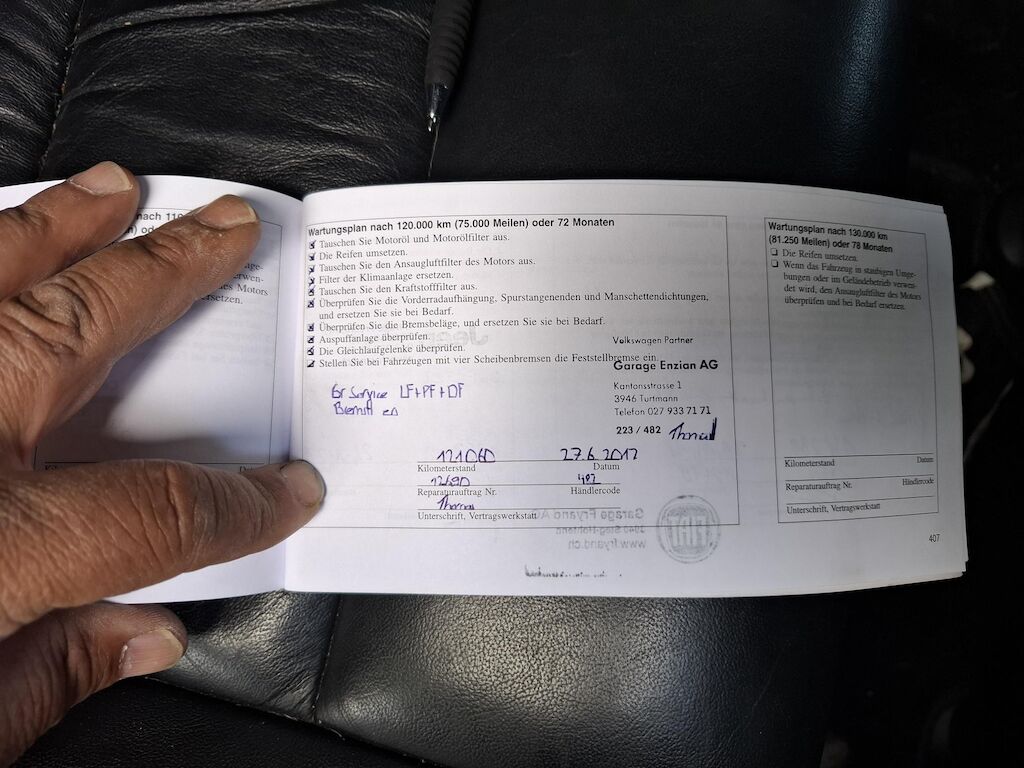 nach 11
Wartungsplan nach 120.000 km (75.000 Meilen) oder 72 Monaten
Tauschen Sie Motoröl und Motorölfilter aus.
Die Reifen umsetzen.
Tauschen Sie den Ansaugluftfilter des Motors aus.
Filter der Klimaanlage ersetzen.
Tauschen Sie den Kraftstofffilter aus.
Überprüfen Sie die Vorderradaufhängung, Spurstangenenden und Manschettendichtungen,
und ersetzen Sie sie bei Bedarf.
Überprüfen Sie die Bremsbeläge, und ersetzen Sie sie bei Bedarf.
Auspuffanlage überprüfen.
Die Gleichlaufgelenke überprüfen.
Stellen Sie bei Fahrzeugen mit vier Scheibenbremsen die Feststellbremse ein.
Volkswagen Partner
Garage Enzian AG
Kantonsstrasse 1
3946 Turtmann
Telefon 027 933 71 71
223 / 482
Gr Service LF+PF+DF
121060 27.6.2012
Kilometerstand Datum
482
Reparaturauftrag Nr. Händlercode
Thomas
Unterschrift, Vertragswerkstatt
Garage Fryand
www.fryand.ch
FIAT
Wartungsplan nach 130.000 km
(81.250 Meilen) oder 78 Monaten
Die Reifen umsetzen.
Wenn das Fahrzeug in staubigen Umge-
bungen oder im Geländebetrieb verwen-
det wird, den Ansaugluftfilter des Motors
überprüfen und bei Bedarf ersetzen.
Kilometerstand Datum
Reparaturauftrag Nr. Händlercode
Unterschrift, Vertragswerkstatt
407